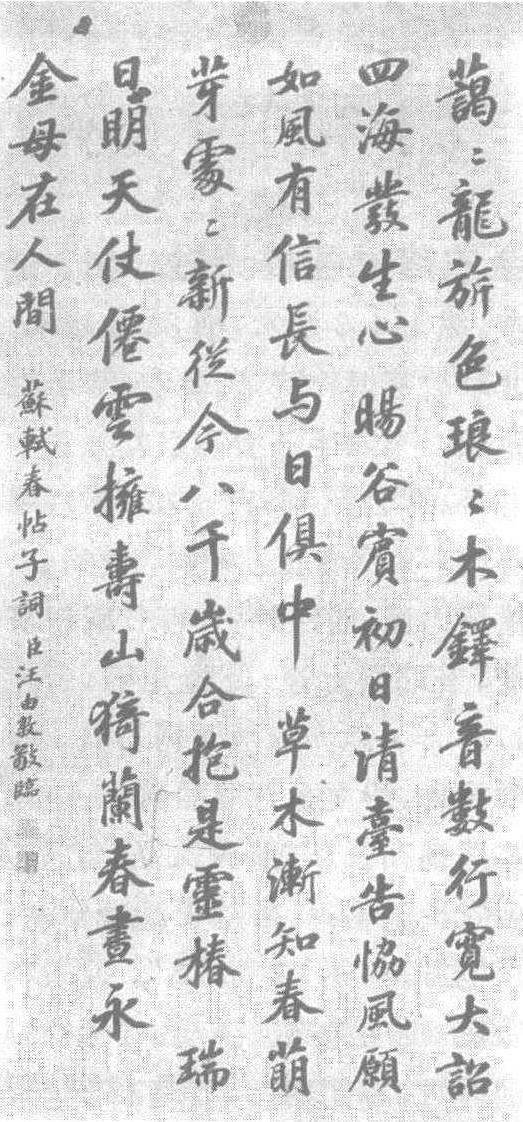 藹〻龍旂色琅〻木鐸音數行寬大詔
四海發生心暘谷賓初日清臺告協風願
如風有信長与日俱中草木漸知春萌
芽處〻新從今八千歲合抱是靈椿瑞
日明天仗僊雲擁壽山猗蘭春晝永
金母在人間蘇軾春帖子詞臣汪由敦敬臨